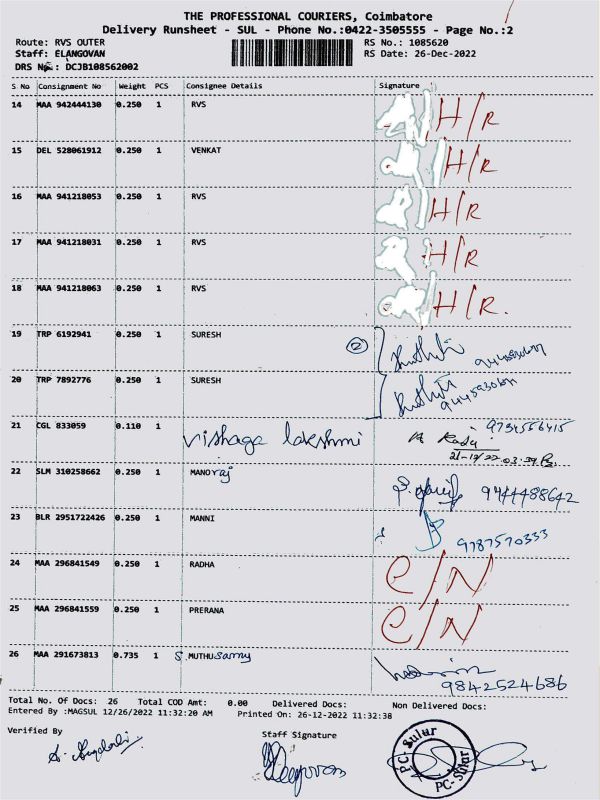 THE PROFESSIONAL COURIERS, Coimbatore
Delivery Runsheet - SUL - Phone No.:0422-3505555 - Page No.:2
Route: RVS OUTER RS No.: 1085620
Staff: ELANGOVAN RS Date: 26-Dec-2022
DRS No.: DCJB108562002
S No Consignment No Weight PCS Consignee Details Signature
14 MAA 942444130 0.250 1 RVS H/R
15 DEL 528061912 0.250 1 VENKAT H/R
16 MAA 941218053 0.250 1 RVS H/R
17 MAA 941218031 0.250 1 RVS H/R
18 MAA 941218063 0.250 1 RVS H/R.
19 TRP 6192941 0.250 1 SURESH 2
20 TRP 7892776 0.250 1 SURESH
21 CGL 833059 0.110 1 vishaga lakshmi 9734556415
22 SLM 310258662 0.250 1 MANOraj 9444488642
23 BLR 2951722426 0.250 1 MANNI 9787570333
24 MAA 296841549 0.250 1 RADHA C/N
25 MAA 296841559 0.250 1 PRERANA C/N
26 MAA 291673813 0.735 1 S.MUTHUSamy 9842524686
Total No. Of Docs: 26 Total COD Amt: 0.00 Delivered Docs: Non Delivered Docs:
Entered By :MAGSUL 12/26/2022 11:32:20 AM Printed On: 26-12-2022 11:32:38
Verified By Staff Signature
PC-Sulur
PC-Sulur